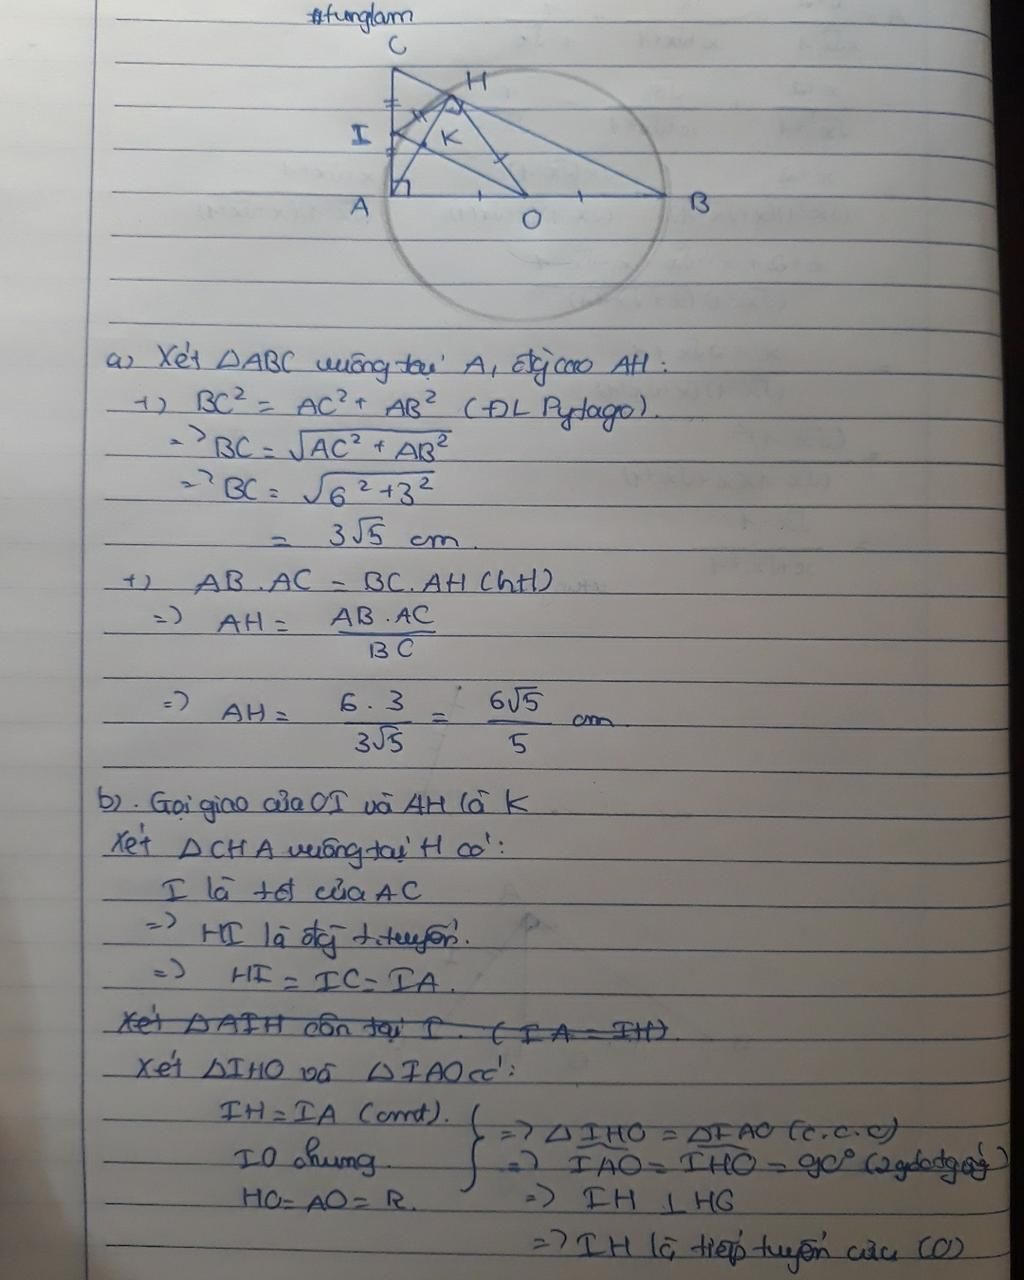 #tunglam
C
H
I
K
A
O
B
a) Xét ΔABC vuông tại A, đg cao AH:
+) BC² = AC² + AB² (ĐL Pytago).
=> BC = √(AC² + AB²)
=> BC = √(6² + 3²)
= 3√5 cm.
+) AB . AC = BC . AH (htl)
=> AH = AB . AC / BC
=> AH = 6 . 3 / 3√5 = 6√5 / 5 cm.
b). Gọi giao của OI và AH là K
Xét ΔCHA vuông tại H có:
I là tđ của AC
=> HI là đg t.tuyến.
=> HI = IC = IA.
Xét ΔAIH cân tại I. (IA = IH)
Xét ΔIHO và ΔIAO có:
IH = IA (cmt). } => ΔIHO = ΔIAO (c.c.c)
IO chung. => IAO = IHO = 90° (2 góc tg ứg)
HO = AO = R. => IH ⊥ HO
=> IH là tiếp tuyến của (O)